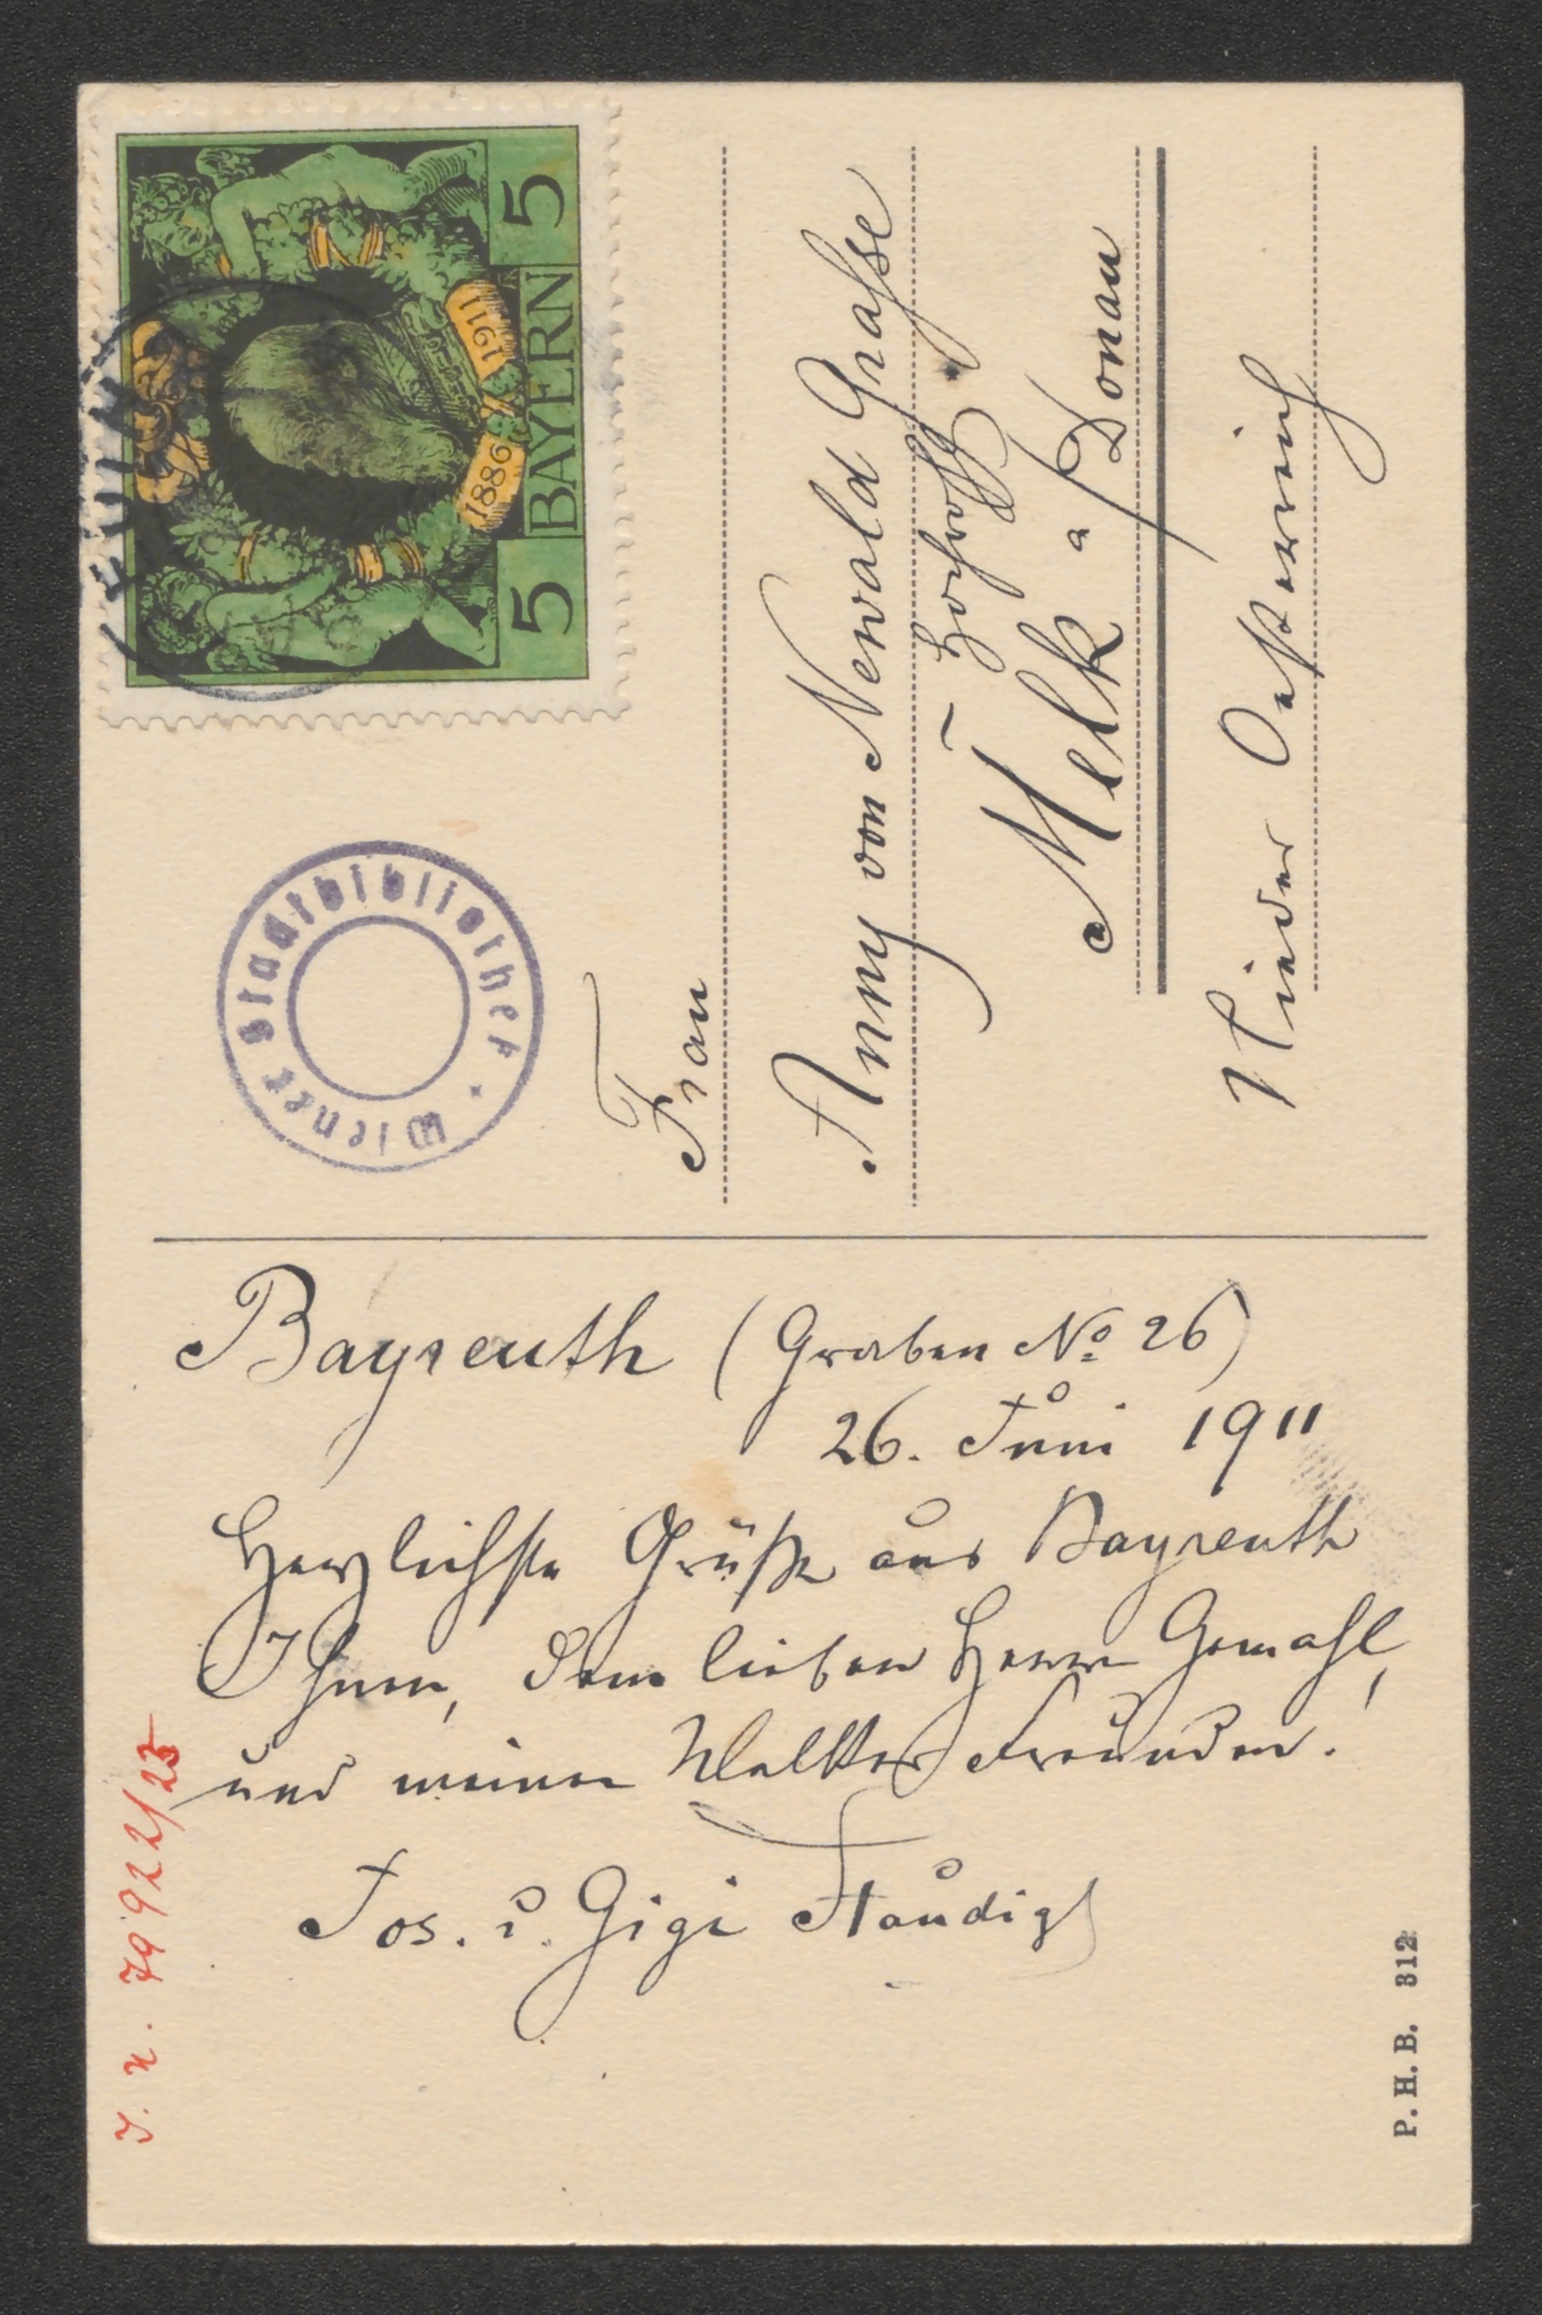 Bayreuth (Graben No 26)
26. Juni 1911
Herzlichste Grüße aus Bayreuth
Ihnen, dem lieben Herrn Gemahl,
und meinen Walther Freunden!
Jos. u. Gigi Staudigl
J. N. 79922/23
P. H. B. 312
5 BAYERN 5
1886 1911
Wiener Stadtbibliothek
Frau
Anny von Newald Grasse
Melk a/Donau
Nieder Oesterreich